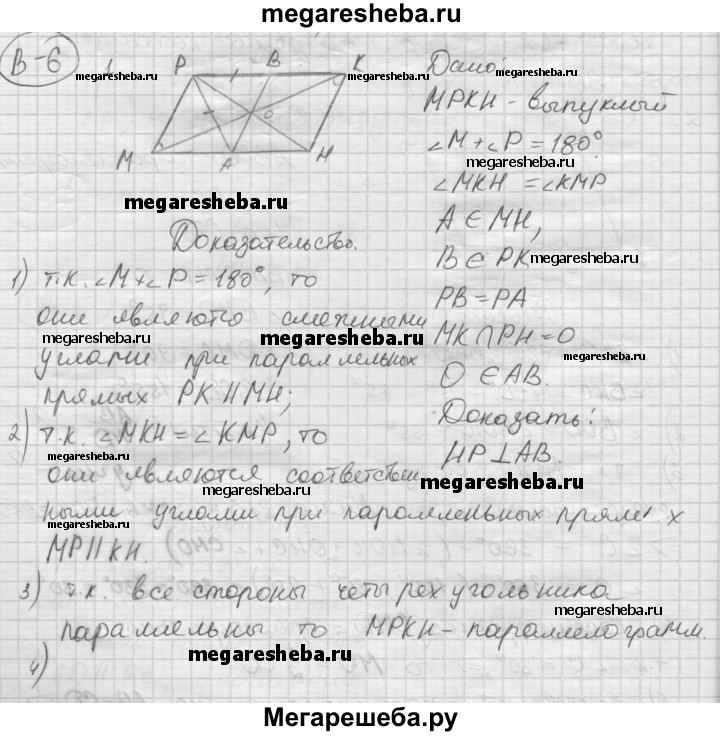 megaresheba.ru
В-6
1.
megaresheba.ru
P
B
K
megaresheba.ru
O
M
A
H
megaresheba.ru
Дано:
МРКН - выпуклый
∠M+∠P=180°
megaresheba.ru
∠MKH =∠KMP
A ∈ MH,
B ∈ PK
megaresheba.ru
PB=PA
MK∩PH=O
megaresheba.ru
O ∈ AB.
Доказать:
HP⊥AB.
Доказательство.
1) т.к. ∠M+∠P=180°, то
они являются смежными
megaresheba.ru
megaresheba.ru
углами при параллельных
прямых PK||MH;
megaresheba.ru
2) т.к. ∠MKH=∠KMP, то
megaresheba.ru
они являются соответствен
megaresheba.ru
megaresheba.ru
ными углами при параллельных прямых
megaresheba.ru
MP||KH.
3) т.к. все стороны четырехугольника
megaresheba.ru
параллельны то МРКН-параллелограмм.
megaresheba.ru
4)
megaresheba.ru
Мегарешеба.ру